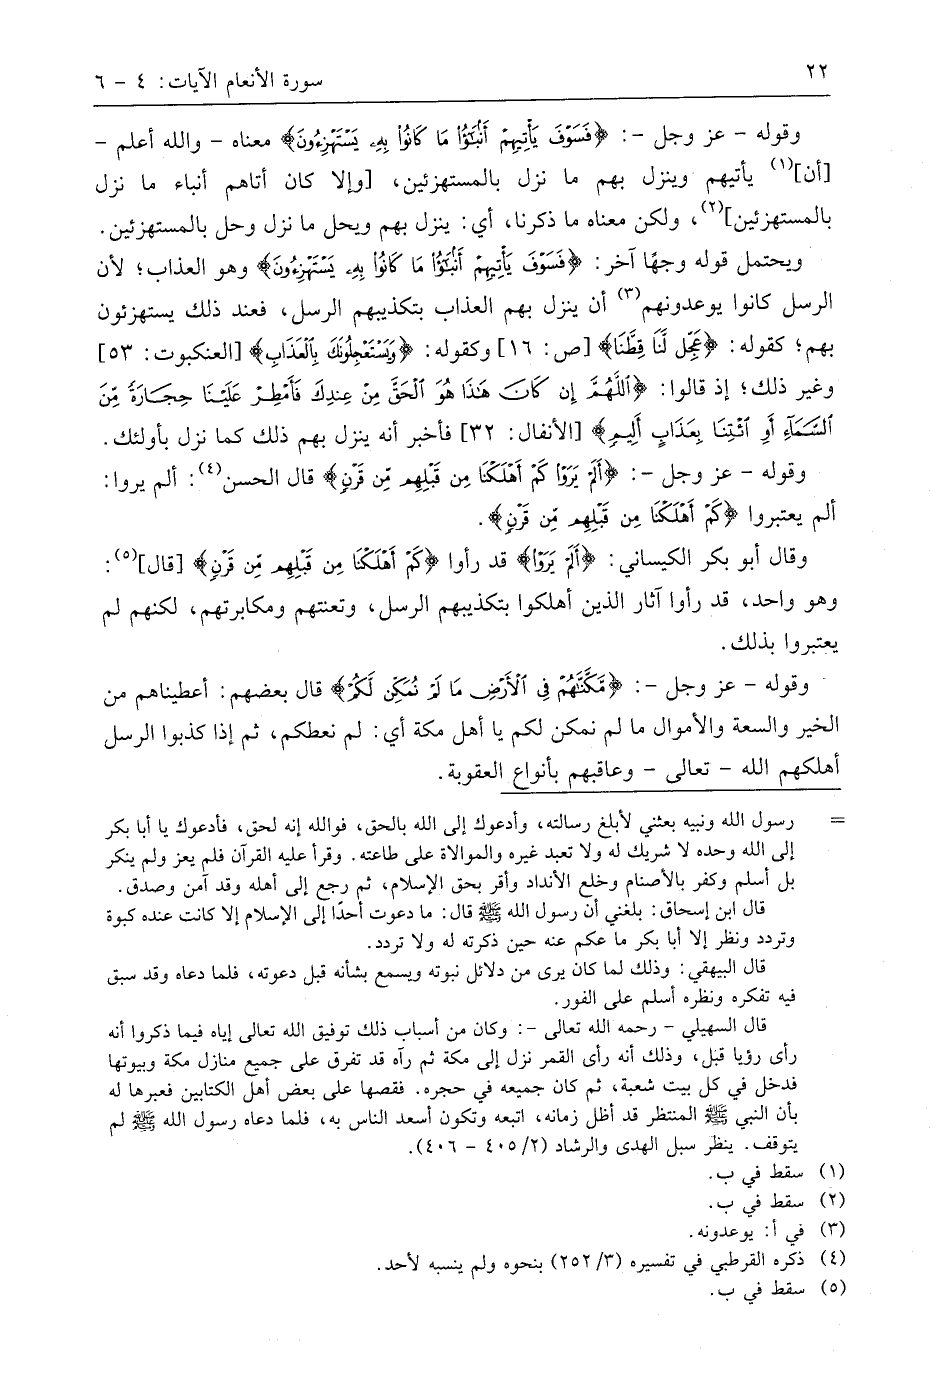 ٢٢
سورة الأنعام الآيات: ٤ - ٦
وقوله - عز وجل -: ﴿فَسَوْفَ يَأْتِيهِمْ أَنۢبَٰٓؤُا۟ مَا كَانُوا۟ بِهِۦ يَسْتَهْزِءُونَ﴾ معناه - والله أعلم -
[أن](١) يأتيهم وينزل بهم ما نزل بالمستهزئين، [وإلا كان أتاهم أنباء ما نزل
بالمستهزئين](٢)، ولكن معناه ما ذكرنا، أي: ينزل بهم ويحل ما نزل وحل بالمستهزئين.
ويحتمل قوله وجهًا آخر: ﴿فَسَوْفَ يَأْتِيهِمْ أَنۢبَٰٓؤُا۟ مَا كَانُوا۟ بِهِۦ يَسْتَهْزِءُونَ﴾ وهو العذاب؛ لأن
الرسل كانوا يوعدونهم(٣) أن ينزل بهم العذاب بتكذيبهم الرسل، فعند ذلك يستهزئون
بهم؛ كقوله: ﴿عَجِّل لَّنَا قِطَّنَا﴾ [ص: ١٦] وكقوله: ﴿وَيَسْتَعْجِلُونَكَ بِالْعَذَابِ﴾ [العنكبوت: ٥٣]
وغير ذلك؛ إذ قالوا: ﴿ٱللَّهُمَّ إِن كَانَ هَٰذَا هُوَ ٱلْحَقَّ مِنْ عِندِكَ فَأَمْطِرْ عَلَيْنَا حِجَارَةً مِّنَ
ٱلسَّمَآءِ أَوِ ٱئْتِنَا بِعَذَابٍ أَلِيمٍ﴾ [الأنفال: ٣٢] فأخبر أنه ينزل بهم ذلك كما نزل بأولئك.
وقوله - عز وجل -: ﴿أَلَمْ يَرَوْا۟ كَمْ أَهْلَكْنَا مِن قَبْلِهِم مِّن قَرْنٍ﴾ قال الحسن(٤): ألم يروا:
ألم يعتبروا ﴿كَمْ أَهْلَكْنَا مِن قَبْلِهِم مِّن قَرْنٍ﴾.
وقال أبو بكر الكيساني: ﴿أَلَمْ يَرَوْا۟﴾ قد رأوا ﴿كَمْ أَهْلَكْنَا مِن قَبْلِهِم مِّن قَرْنٍ﴾ [قال](٥):
وهو واحد، قد رأوا آثار الذين أهلكوا بتكذيبهم الرسل، وتعنتهم ومكابرتهم، لكنهم لم
يعتبروا بذلك.
وقوله - عز وجل -: ﴿مَّكَّنَّٰهُمْ فِى ٱلْأَرْضِ مَا لَمْ نُمَكِّن لَّكُمْ﴾ قال بعضهم: أعطيناهم من
الخير والسعة والأموال ما لم نمكن لكم يا أهل مكة أي: لم نعطكم، ثم إذا كذبوا الرسل
أهلكهم الله - تعالى - وعاقبهم بأنواع العقوبة.
= رسول الله ونبيه بعثني لأبلغ رسالته، وأدعوك إلى الله بالحق، فوالله إنه لحق، فأدعوك يا أبا بكر
إلى الله وحده لا شريك له ولا تعبد غيره والموالاة على طاعته. وقرأ عليه القرآن فلم يعز ولم ينكر
بل أسلم وكفر بالأصنام وخلع الأنداد وأقر بحق الإسلام، ثم رجع إلى أهله وقد آمن وصدق.
قال ابن إسحاق: بلغني أن رسول الله ﷺ قال: ما دعوت أحدًا إلى الإسلام إلا كانت عنده كبوة
وتردد ونظر إلا أبا بكر ما عكم عنه حين ذكرته له ولا تردد.
قال البيهقي: وذلك لما كان يرى من دلائل نبوته ويسمع بشأنه قبل دعوته، فلما دعاه وقد سبق
فيه تفكره ونظره أسلم على الفور.
قال السهيلي - رحمه الله تعالى -: وكان من أسباب ذلك توفيق الله تعالى إياه فيما ذكروا أنه
رأى رؤيا قبل، وذلك أنه رأى القمر نزل إلى مكة ثم رآه قد تفرق على جميع منازل مكة وبيوتها
فدخل في كل بيت شعبة، ثم كان جميعه في حجره. فقصها على بعض أهل الكتابين فعبرها له
بأن النبي ﷺ المنتظر قد أظل زمانه، اتبعه وتكون أسعد الناس به، فلما دعاه رسول الله ﷺ لم
يتوقف. ينظر سبل الهدى والرشاد (٢/٤٠٥ - ٤٠٦).
(١) سقط في ب.
(٢) سقط في ب.
(٣) في أ: يوعدونه.
(٤) ذكره القرطبي في تفسيره (٣/٢٥٢) بنحوه ولم ينسبه لأحد.
(٥) سقط في ب.